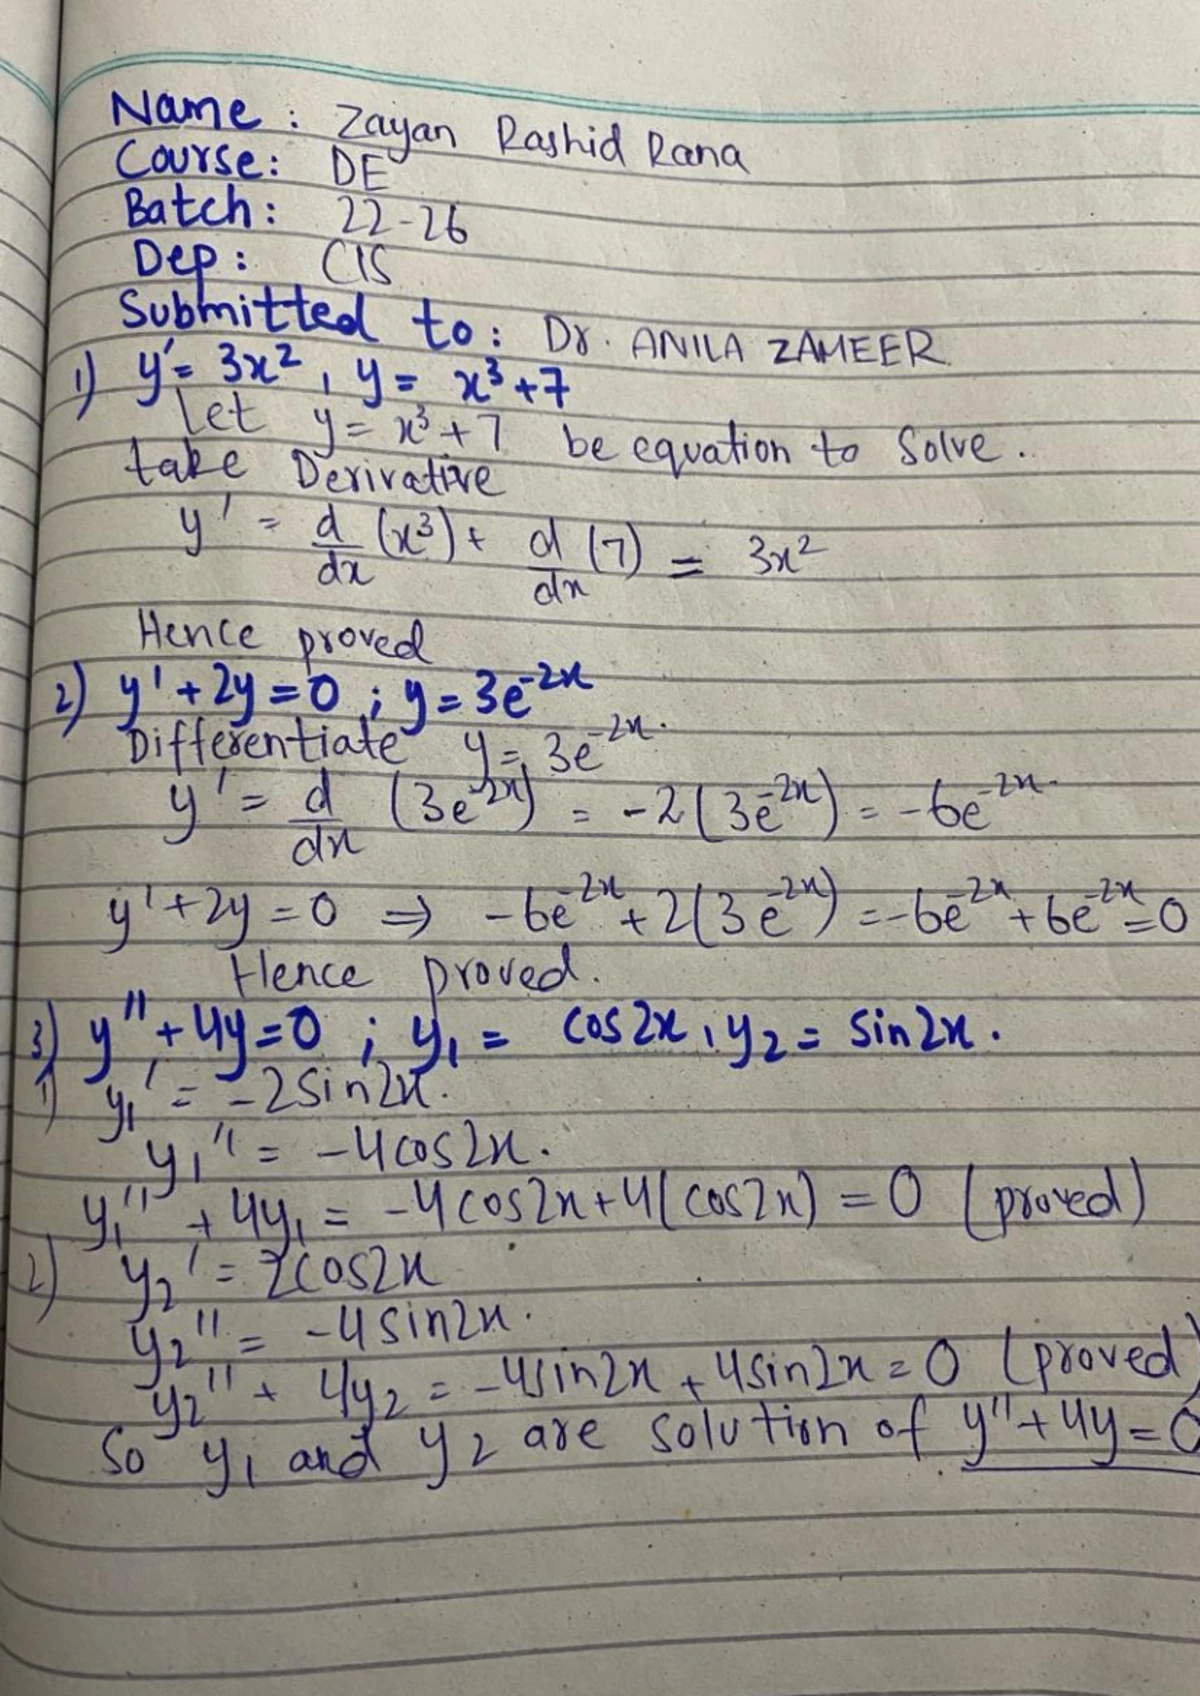 Name : Zayan Rashid Rana
Course: DE
Batch: 22-26
Dep: CIS
Submitted to: Dr. ANILA ZAMEER
1) y' = 3x², y = x³+7
Let y = x³+7 be equation to solve.
take Derivative
y' = d/dx (x³) + d/dx (7) = 3x²
Hence proved
2) y'+2y=0 ; y=3e^-2x
Differentiate y = 3e^-2x.
y' = d/dx (3e^-2x) = -2(3e^-2x) = -6e^-2x.
y'+2y=0 ⇒ -6e^-2x + 2(3e^-2x) = -6e^-2x + 6e^-2x = 0
Hence proved.
3) y''+4y=0 ; y₁ = cos2x, y₂ = sin2x.
1) y₁' = -2sin2x.
y₁'' = -4cos2x.
y₁'' + 4y₁ = -4cos2x+4(cos2x) = 0 (proved)
2) y₂' = 2cos2x
y₂'' = -4sin2x.
y₂'' + 4y₂ = -4sin2x + 4sin2x = 0 (proved)
So y₁ and y₂ are solution of y''+4y=0